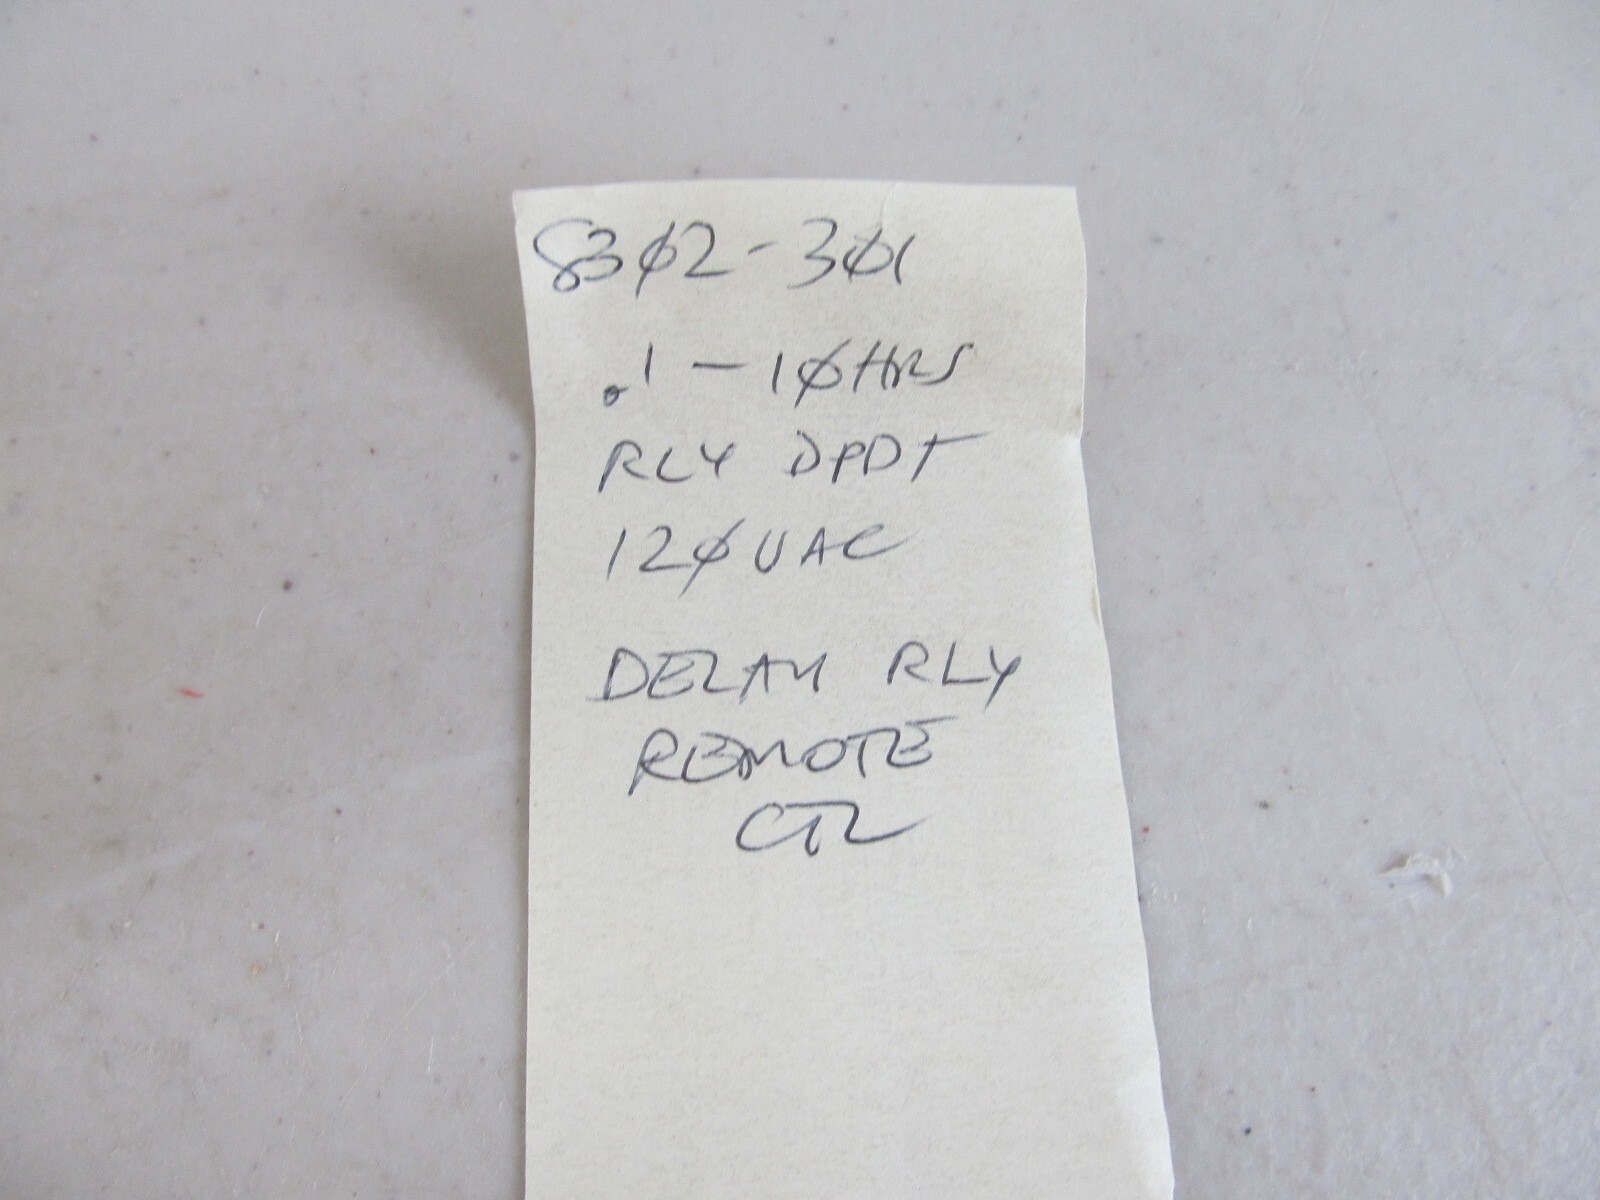 83Ø2-3Ø1
.1 - 1ØHRS
RLY DPDT
12ØVAC
DELAY RLY
REMOTE
CTL